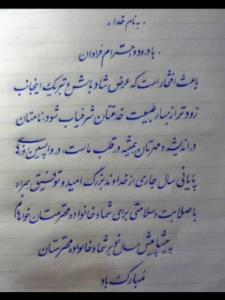 به نام خدا
با درود و احترام فراوان
باعث افتخار است که عرض شادباش و تبریک اینجانب
زودتر از بهار طبیعت خدمتتان شرفیاب شود: نامتان
در اندیشه و مهرتان همیشه در قلب ماست، در واپسین روزهای
پایانی سال جاری از خداوند بزرگ امید و توفیق همراه
با صلابت و سلامتی برای شما و خانواده محترمتان خواهانم
پیشاپیش سال نو بر شما و خانواده محترمتان
مبارک باد